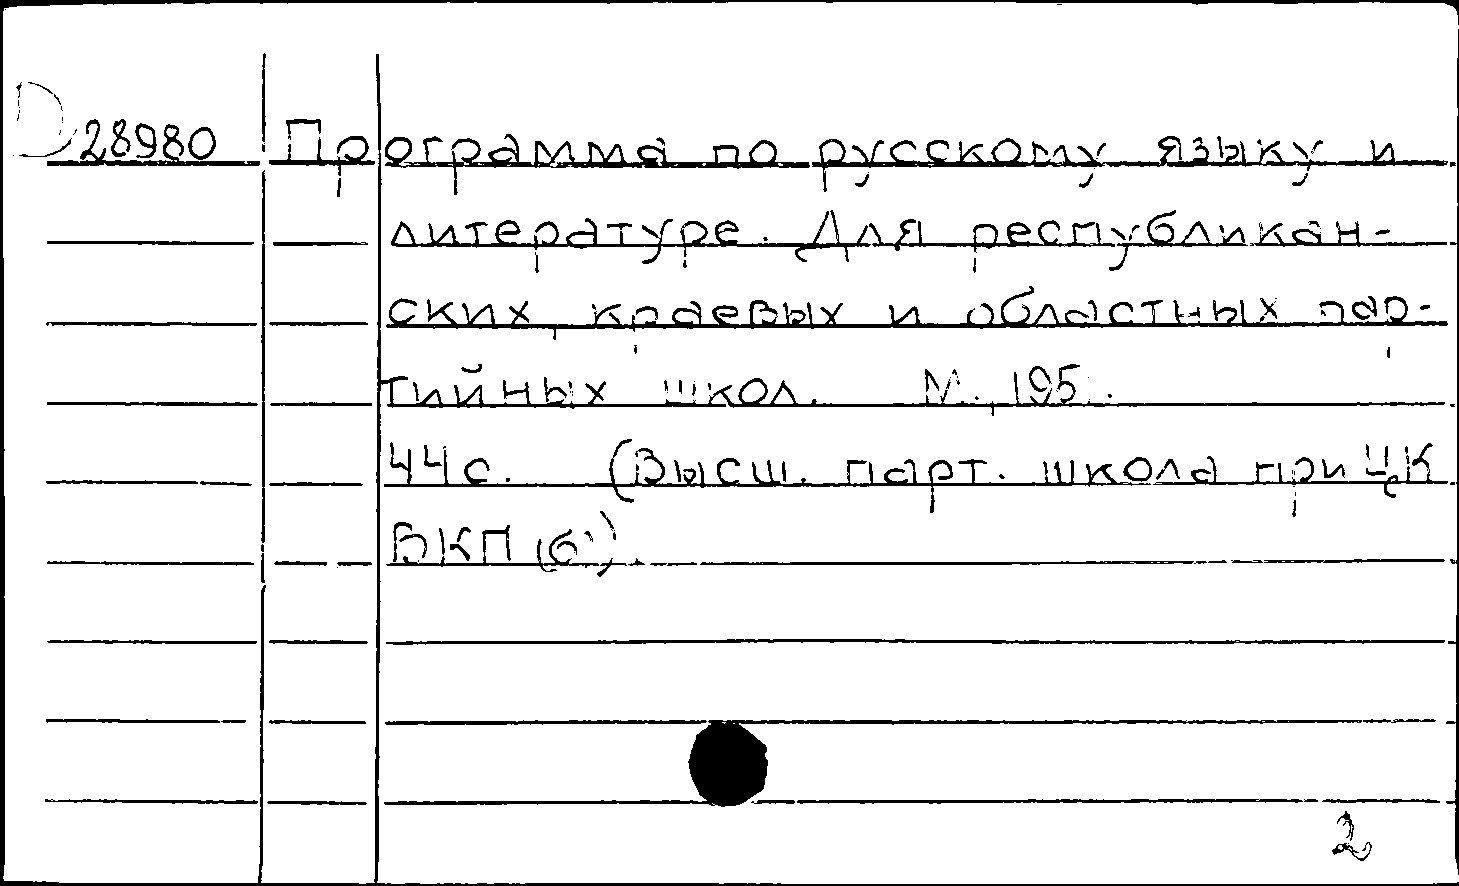 D 28980 Программа по русскому языку и
литературе. Для республикан-
ских, краевых и областных пар-
тийных школ. М., 195 .
44с. (Высш. парт. школа при ЦК
ВКП(б)).
2